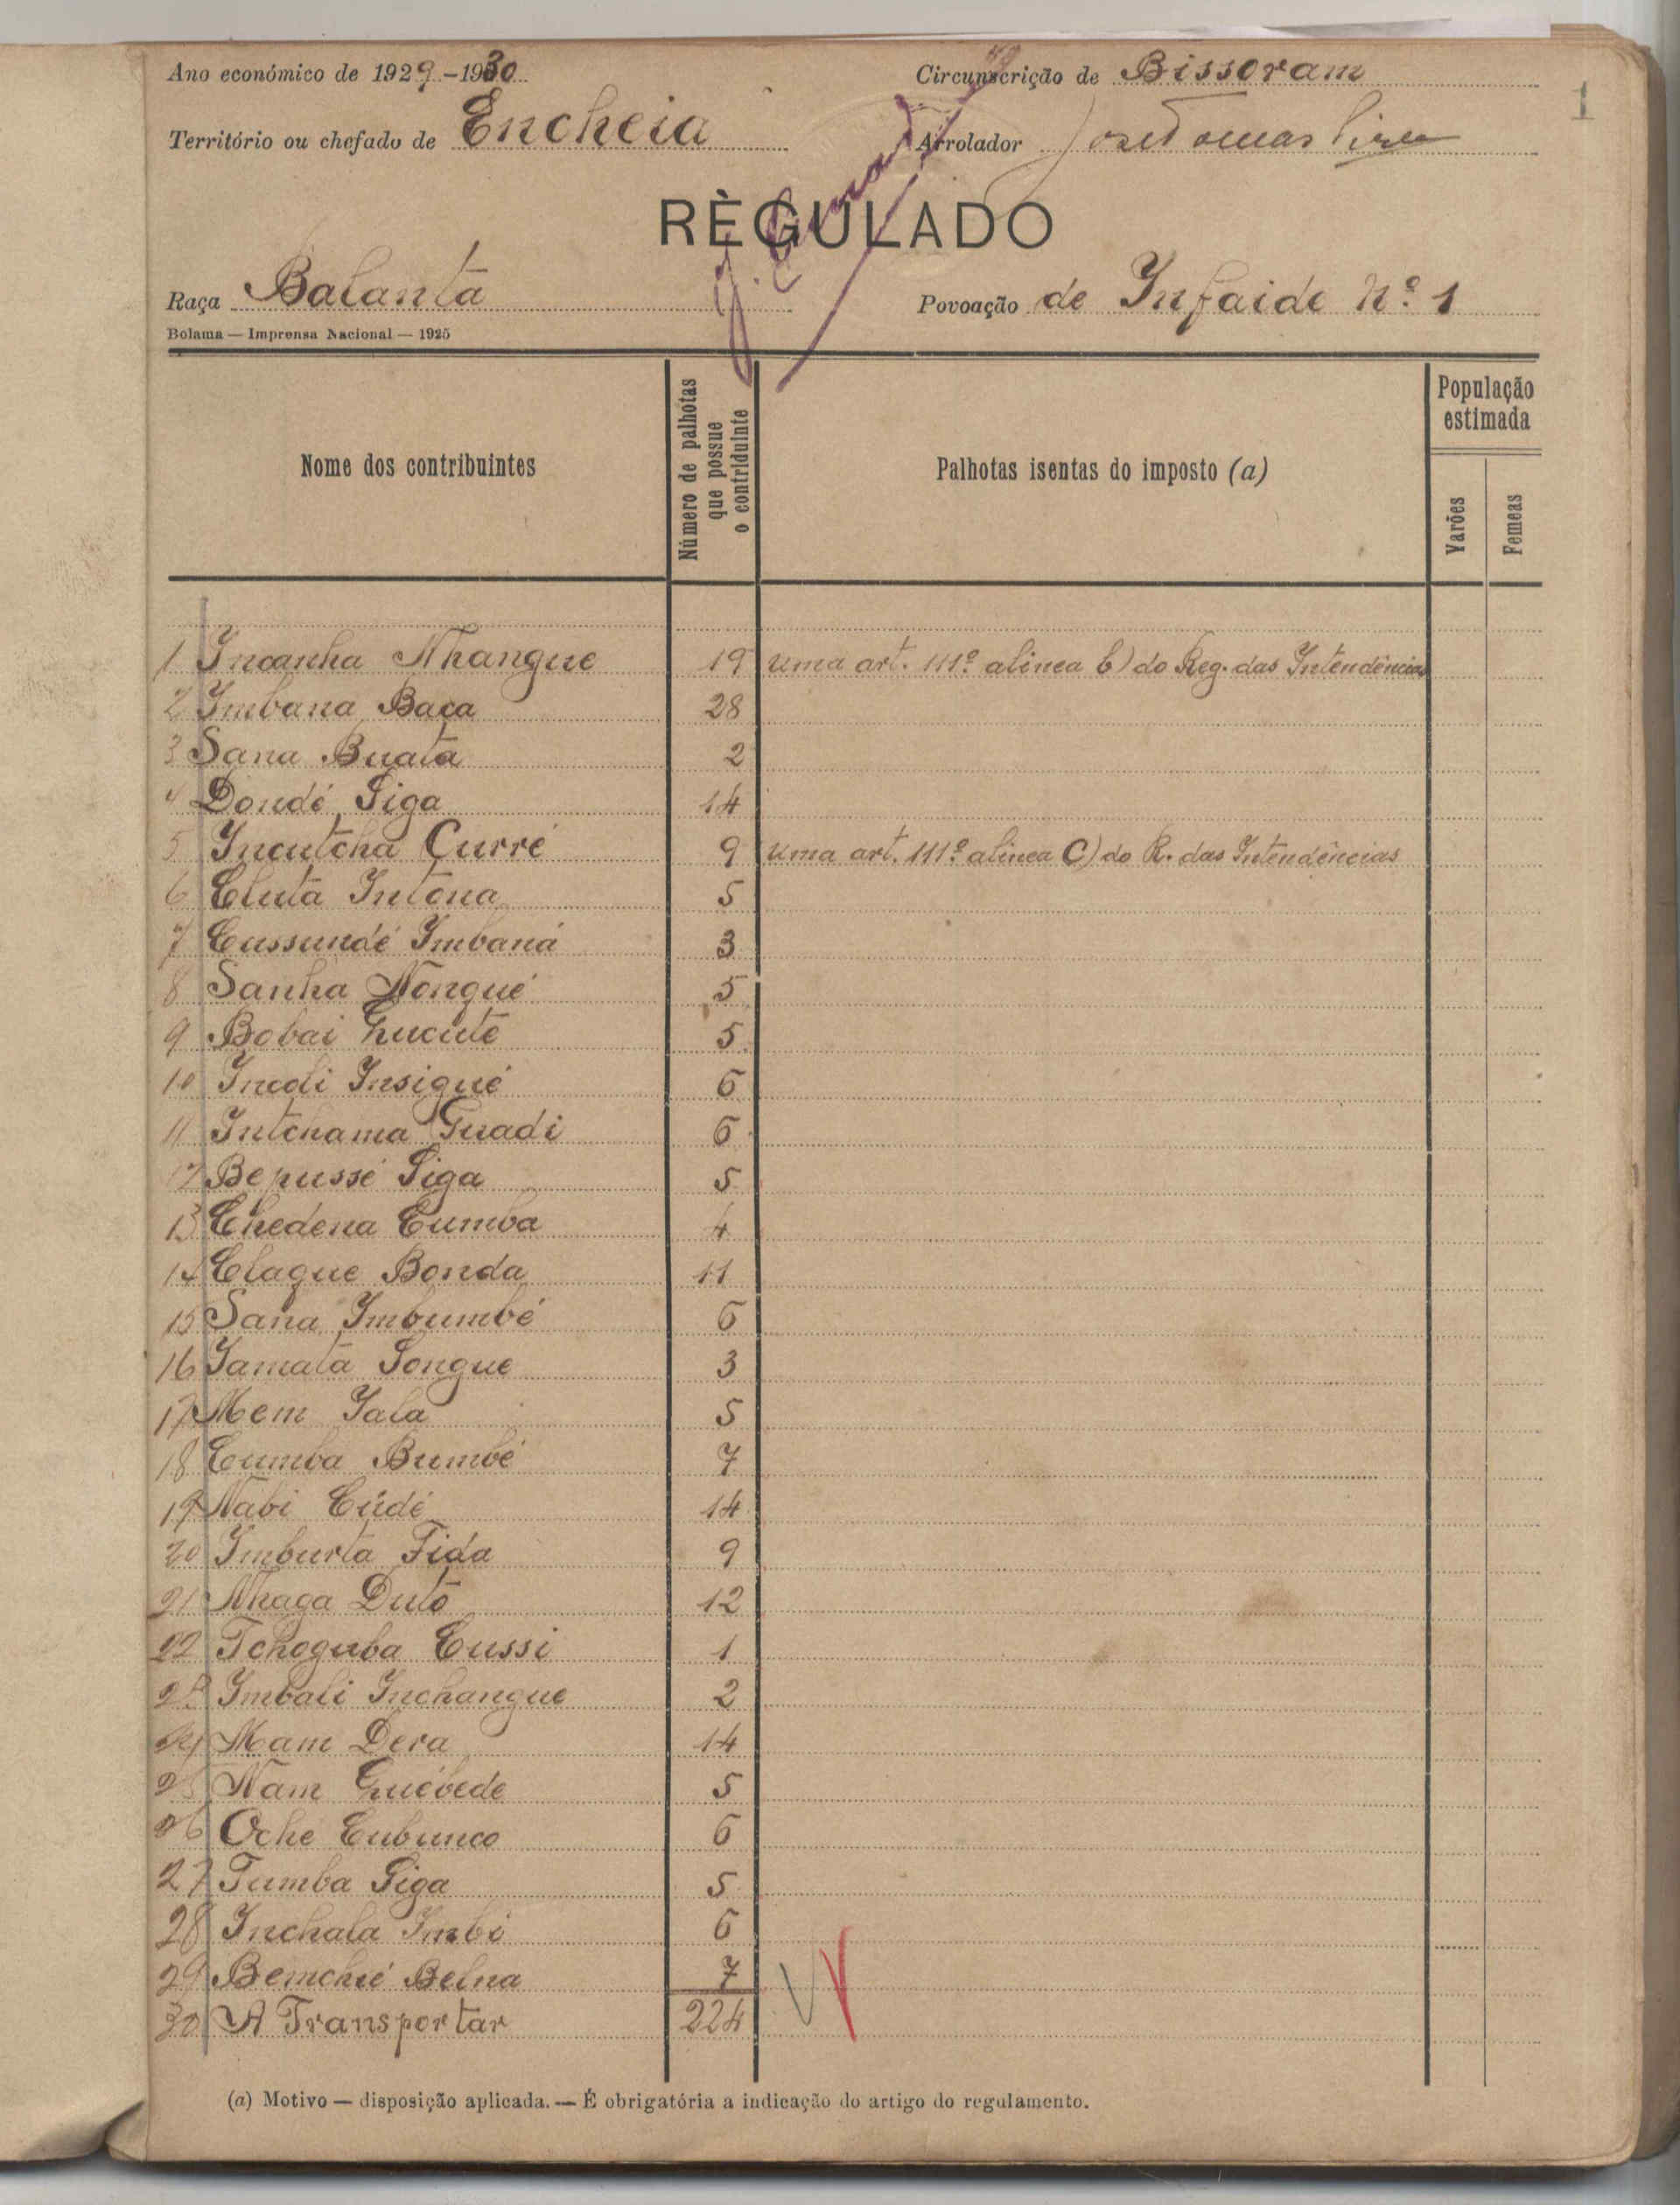 Ano económico de 1929-1930
Circunscrição de Bissoram
1
Território ou chefado de Encheia
Arrolador José Tomas Pires
RÈGULADO
Raça Balanta
Povoação de Infaide Nº 1
Bolama — Imprensa Nacional — 1925
Nome dos contribuintes
Número de palhotas que possue o contriduinte
Palhotas isentas do imposto (a)
População estimada
Varões
Femeas
1 Incanha Nhangue 19 uma art. 111º alinea b) do Reg. das Intendências
2 Imbana Baca 28
3 Sana Buata 2
4 Dondé Siga 14
5 Incutcha Curré 9 uma art. 111º alinea C) do R. das Intendências
6 Cluta Intona 5
7 Cussundé Imbaná 3
8 Sanha Nongué 5
9 Bobai 5
10 Incoli Insigué 6
11 Intchama Guadi 6
12 Bepussé Siga 5
13 Chedena Cumba 4
14 Clague Bonda 11
15 Sana Imbumbé 6
16 Iamata Songue 3
17 Mem Iala 5
18 Cumba Bumbé 7
19 Nabi Cudé 14
20 Imburta Fida 9
21 Nhaga Dutó 12
22 Tchoguba Cussi 1
23 Imbali Inchangue 2
24 Mam Dera 14
25 Nam Guébede 5
26 Oché Cubunco 6
27 Tumba Siga 5
28 Inchala Imbi 6
29 Bemché Belna 7
30 A Transportar 224
(a) Motivo — disposição aplicada. — É obrigatória a indicação do artigo do regulamento.